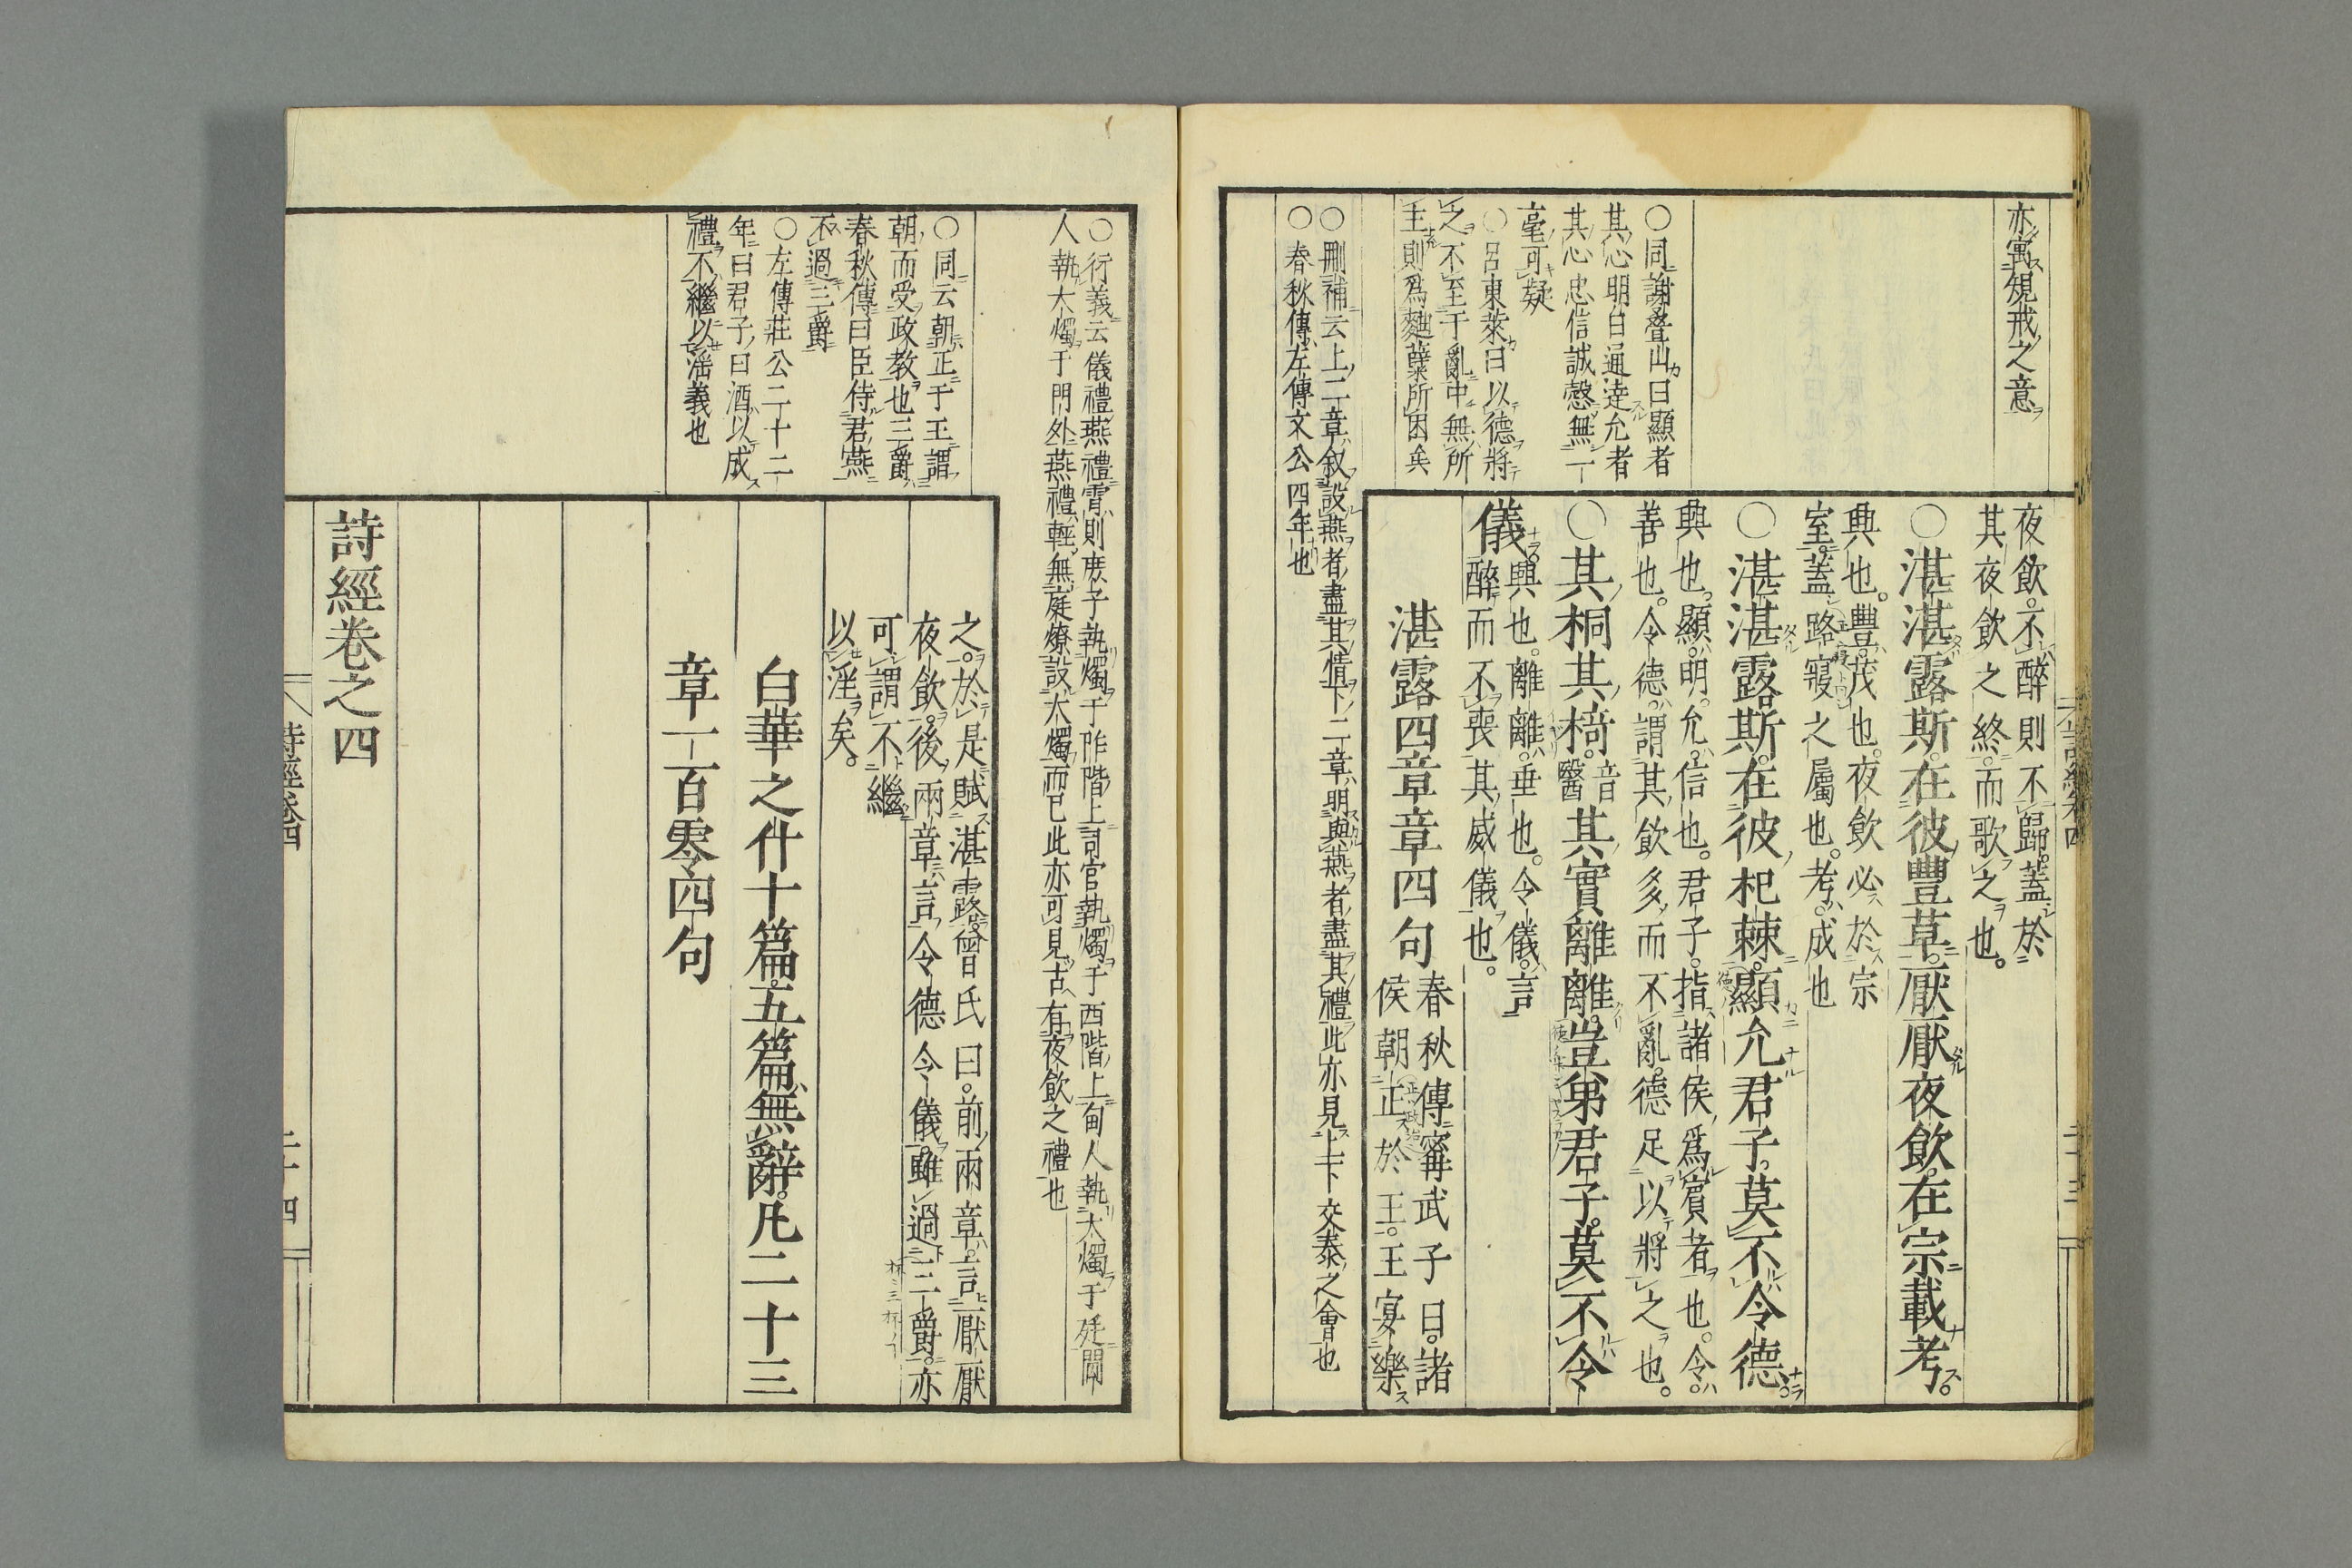 亦寓規戒之意
○同謝疊山曰顯者
其心明白通達允者
其心忠信誠慤無一
毫可疑
○呂東萊曰以德將
之不至于亂中無所
主則爲麯蘖所困矣
夜飲。不醉則不歸。蓋於
其夜飲之終。而歌之也。
○湛湛露斯。在彼豐草。厭厭夜飲。在宗載考。
興也。豐。茂也。夜飲必於宗
室。蓋路寢之屬也。考。成也
○湛湛露斯。在彼杞棘。顯允君子。莫不令德。
興也。顯。明。允。信也。君子。指諸侯爲賓者也。令。
善也。令德。謂其飲多而不亂。德足以將之也。
○其桐其椅。音醫其實離離。豈弟君子。莫不令
儀。興也。離離。垂也。令儀。言
醉而不喪其威儀也。
湛露四章章四句
春秋傳。甯武子曰。諸
侯朝正於王。王宴樂
○刪補云上二章敘設燕者盡其情下二章明與燕者盡其禮此亦見上下交泰之會也
○春秋傳左傳文公四年也
詩經卷四
二十三
○衍義云儀禮燕禮霄則庶子執燭于阼階上司宮執燭于西階上甸人執大燭于廷閽
人執大燭于門外燕禮輕無庭燎設大燭而已此亦可見古有夜飲之禮也
○同云朝正于王謂
朝而受政教也三爵
春秋傳曰臣侍君燕
不過三爵
○左傳莊公二十二
年曰君子曰酒以成
禮不繼以淫義也
之。於是賦湛露。曾氏曰。前兩章。言厭厭
夜飲。後兩章。言令德令儀。雖過三爵。亦
可謂不繼
以淫矣。
白華之什十篇。五篇無辭。凡二十三
章一百零四句
詩經卷之四
詩經卷四
二十四